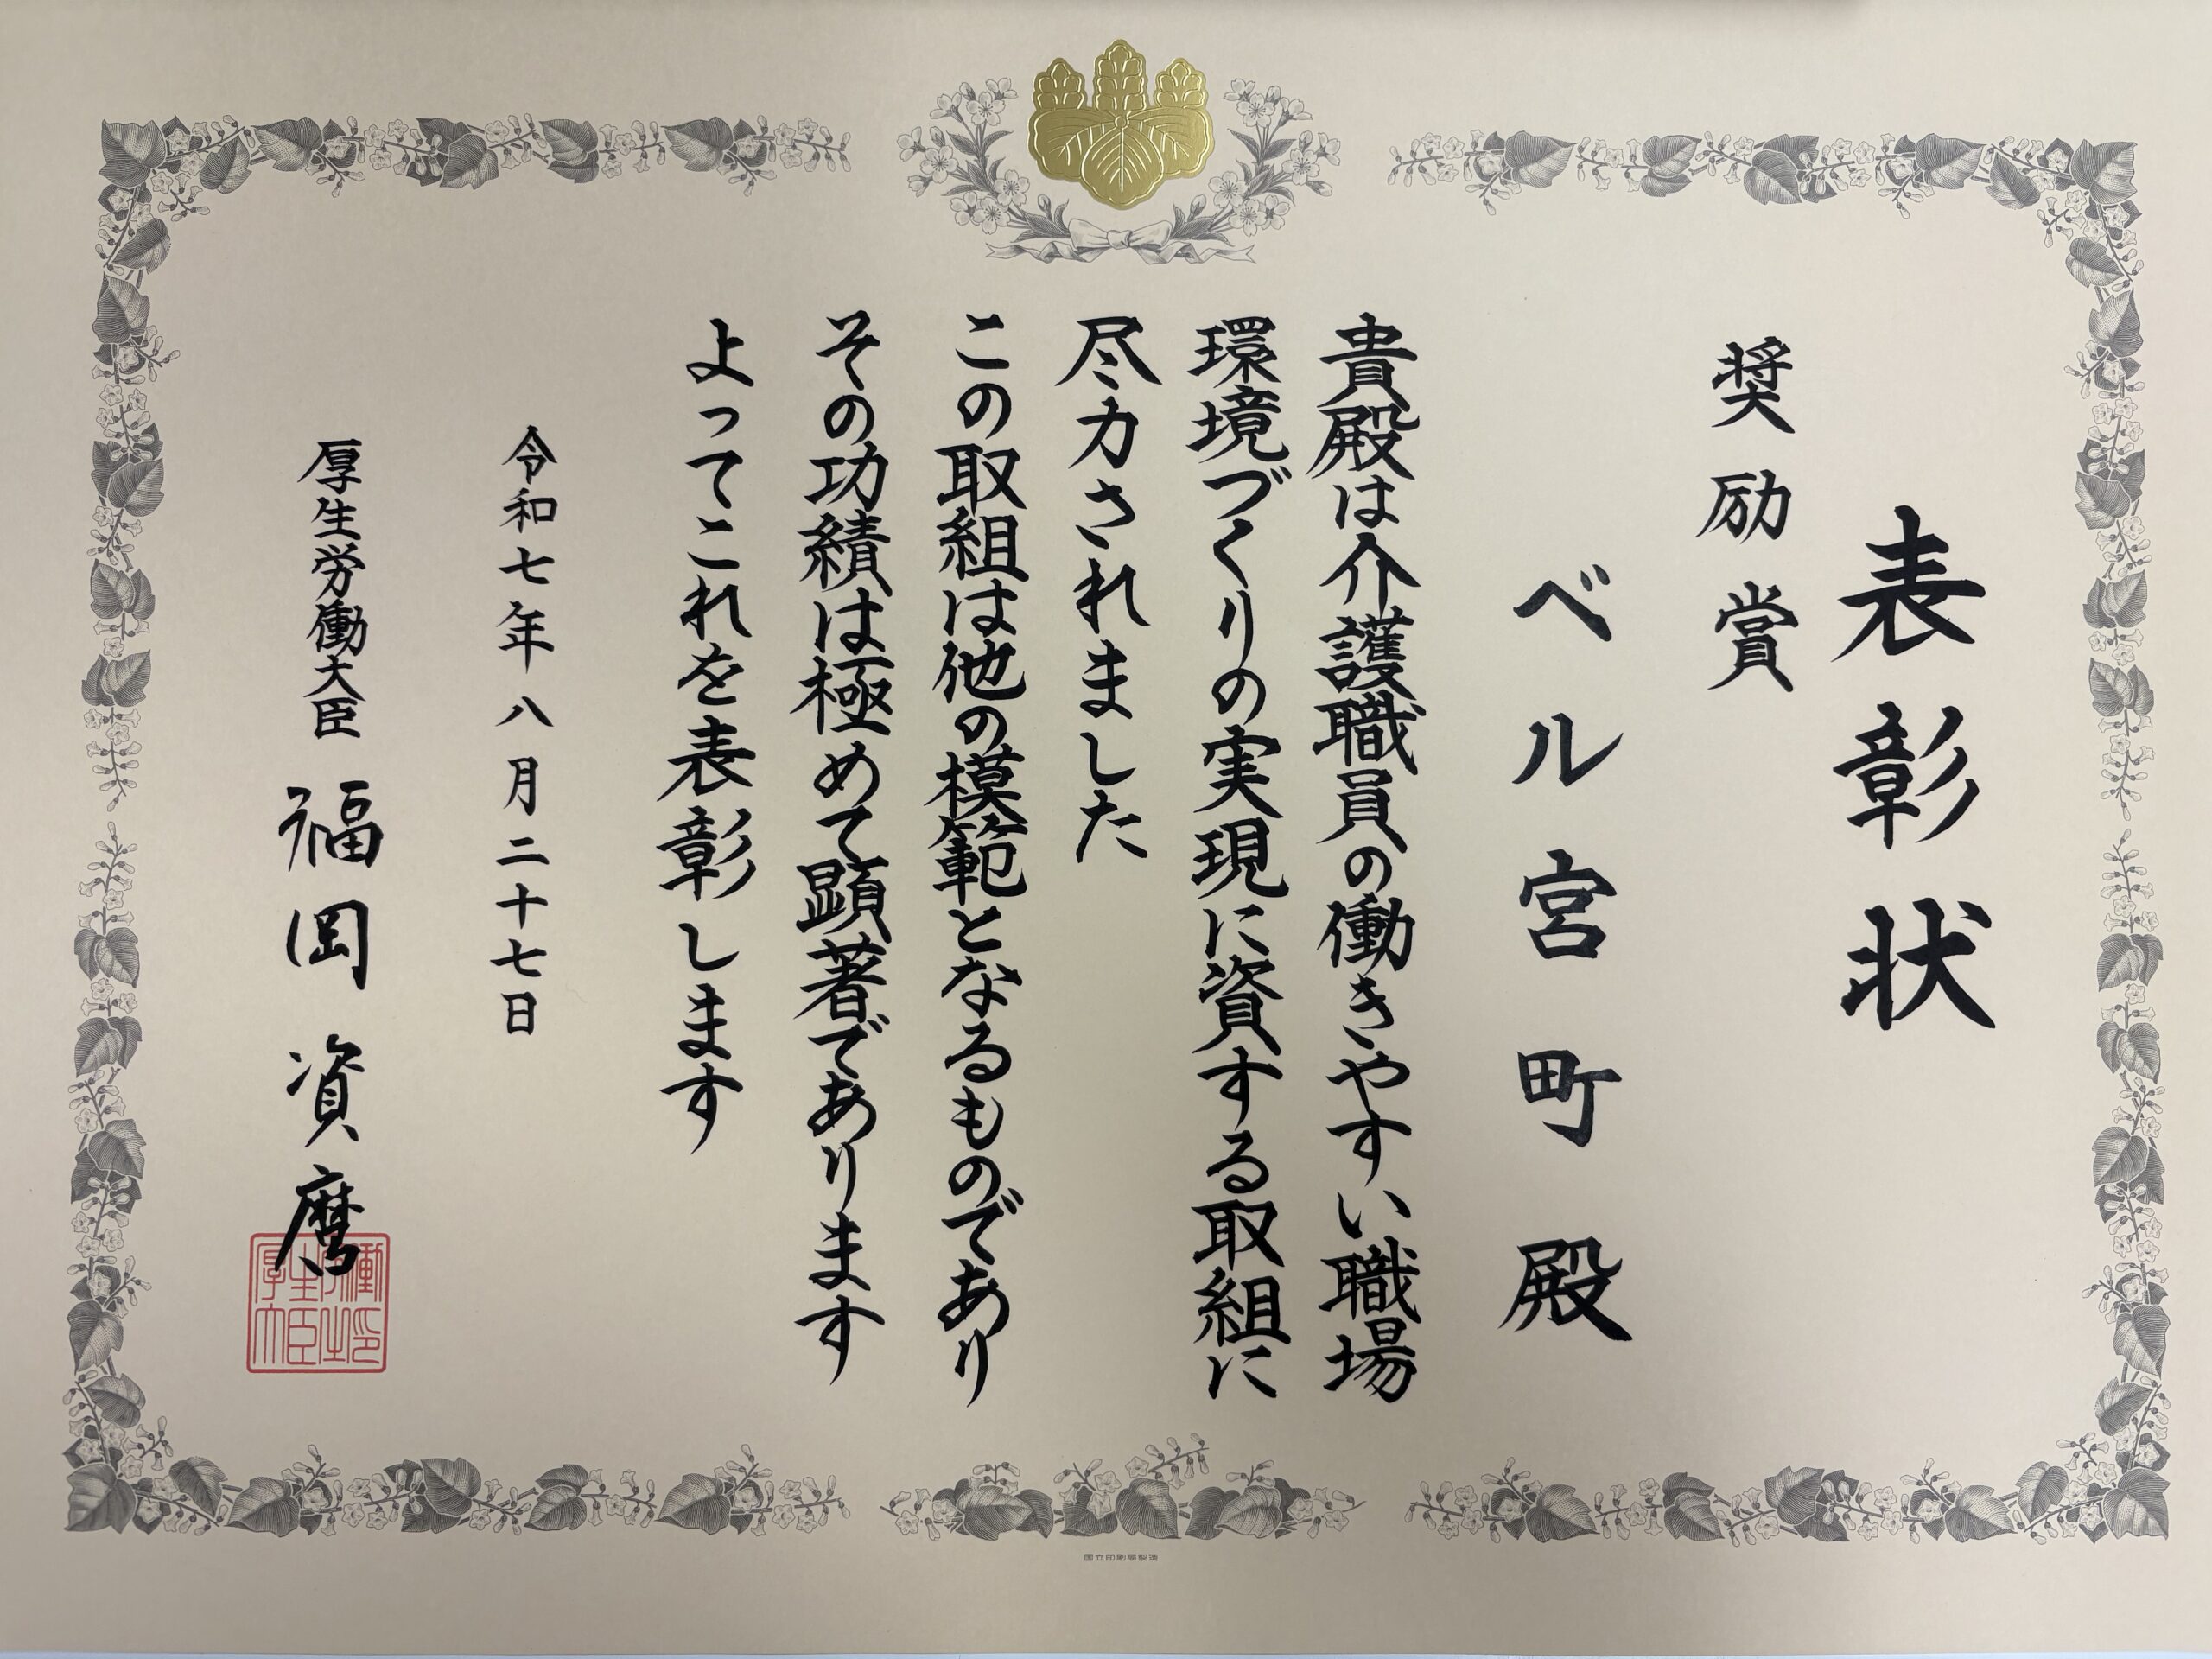 表彰状
奨励賞
ベル宮町殿
貴殿は介護職員の働きやすい職場
環境づくりの実現に資する取組に
尽力されました
この取組は他の模範となるものであり
その功績は極めて顕著であります
よってこれを表彰します
令和七年八月二十七日
厚生労働大臣 福岡資麿
国立印刷局製造